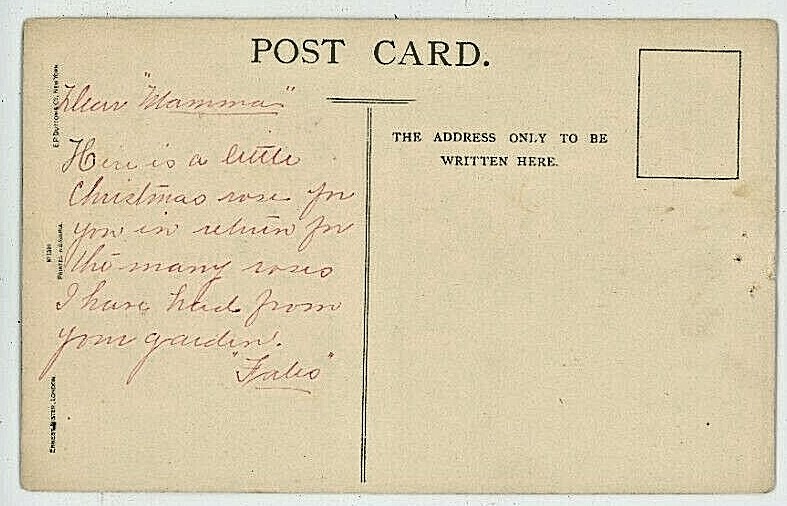 POST CARD.
Dear "Mamma"
Here is a little
Christmas rose for
you in return for
the many roses
I have had from
your garden.
THE ADDRESS ONLY TO BE
WRITTEN HERE.
E.P. DUTTON & CO. NEW YORK.
PRINTED IN BAVARIA
ERNEST NISTER, LONDON